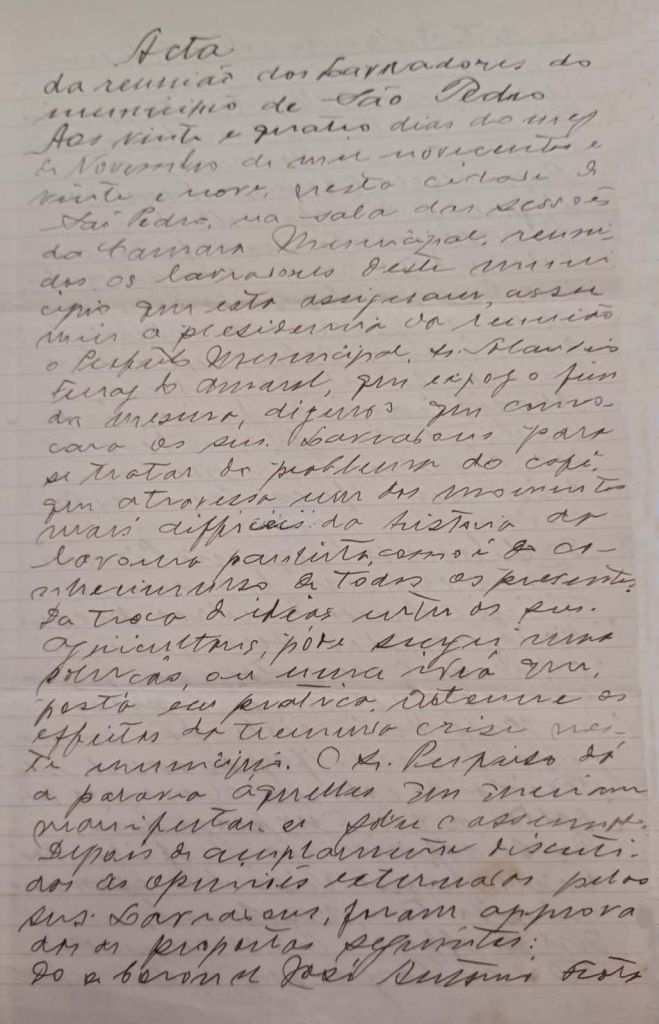 Acta
da reunião dos Lavradores do
municipio de São Pedro
Aos vinte e quatro dias do mez
de Novembro de mil novecentos e
vinte e nove, nesta cidade de
São Pedro, na sala das sessões
da Camara Municipal, reuni-
dos os lavradores deste muni
cipio que esta assignam, assu
miu a presidencia da reunião
o Perfeito Municipal, Sr.
Ferraz do Amaral, que expoz o fim
da mesma, digerros que convo-
cara os snrs. Lavradores para
se tratar do problema do café,
que atravessa um dos momentos
mais difficeis da historia da
lavoura paulista, como é do co-
nhecimento de todos os presentes.
Da troca de idéias entre os snrs.
agricultores, póde surgir uma
solução, ou uma idéa que,
posta em pratica, attenue os
effeitos da tremenda crise nes-
te municipio. O Sr. Perfeito dá
a palavra áquelles que queiram
manifestar-se sobre o assumpto.
Depois de amplamente discuti-
das as opiniões externadas pelos
snrs. Lavradores, foram approva
das as propostas seguintes:
Do José Antonio